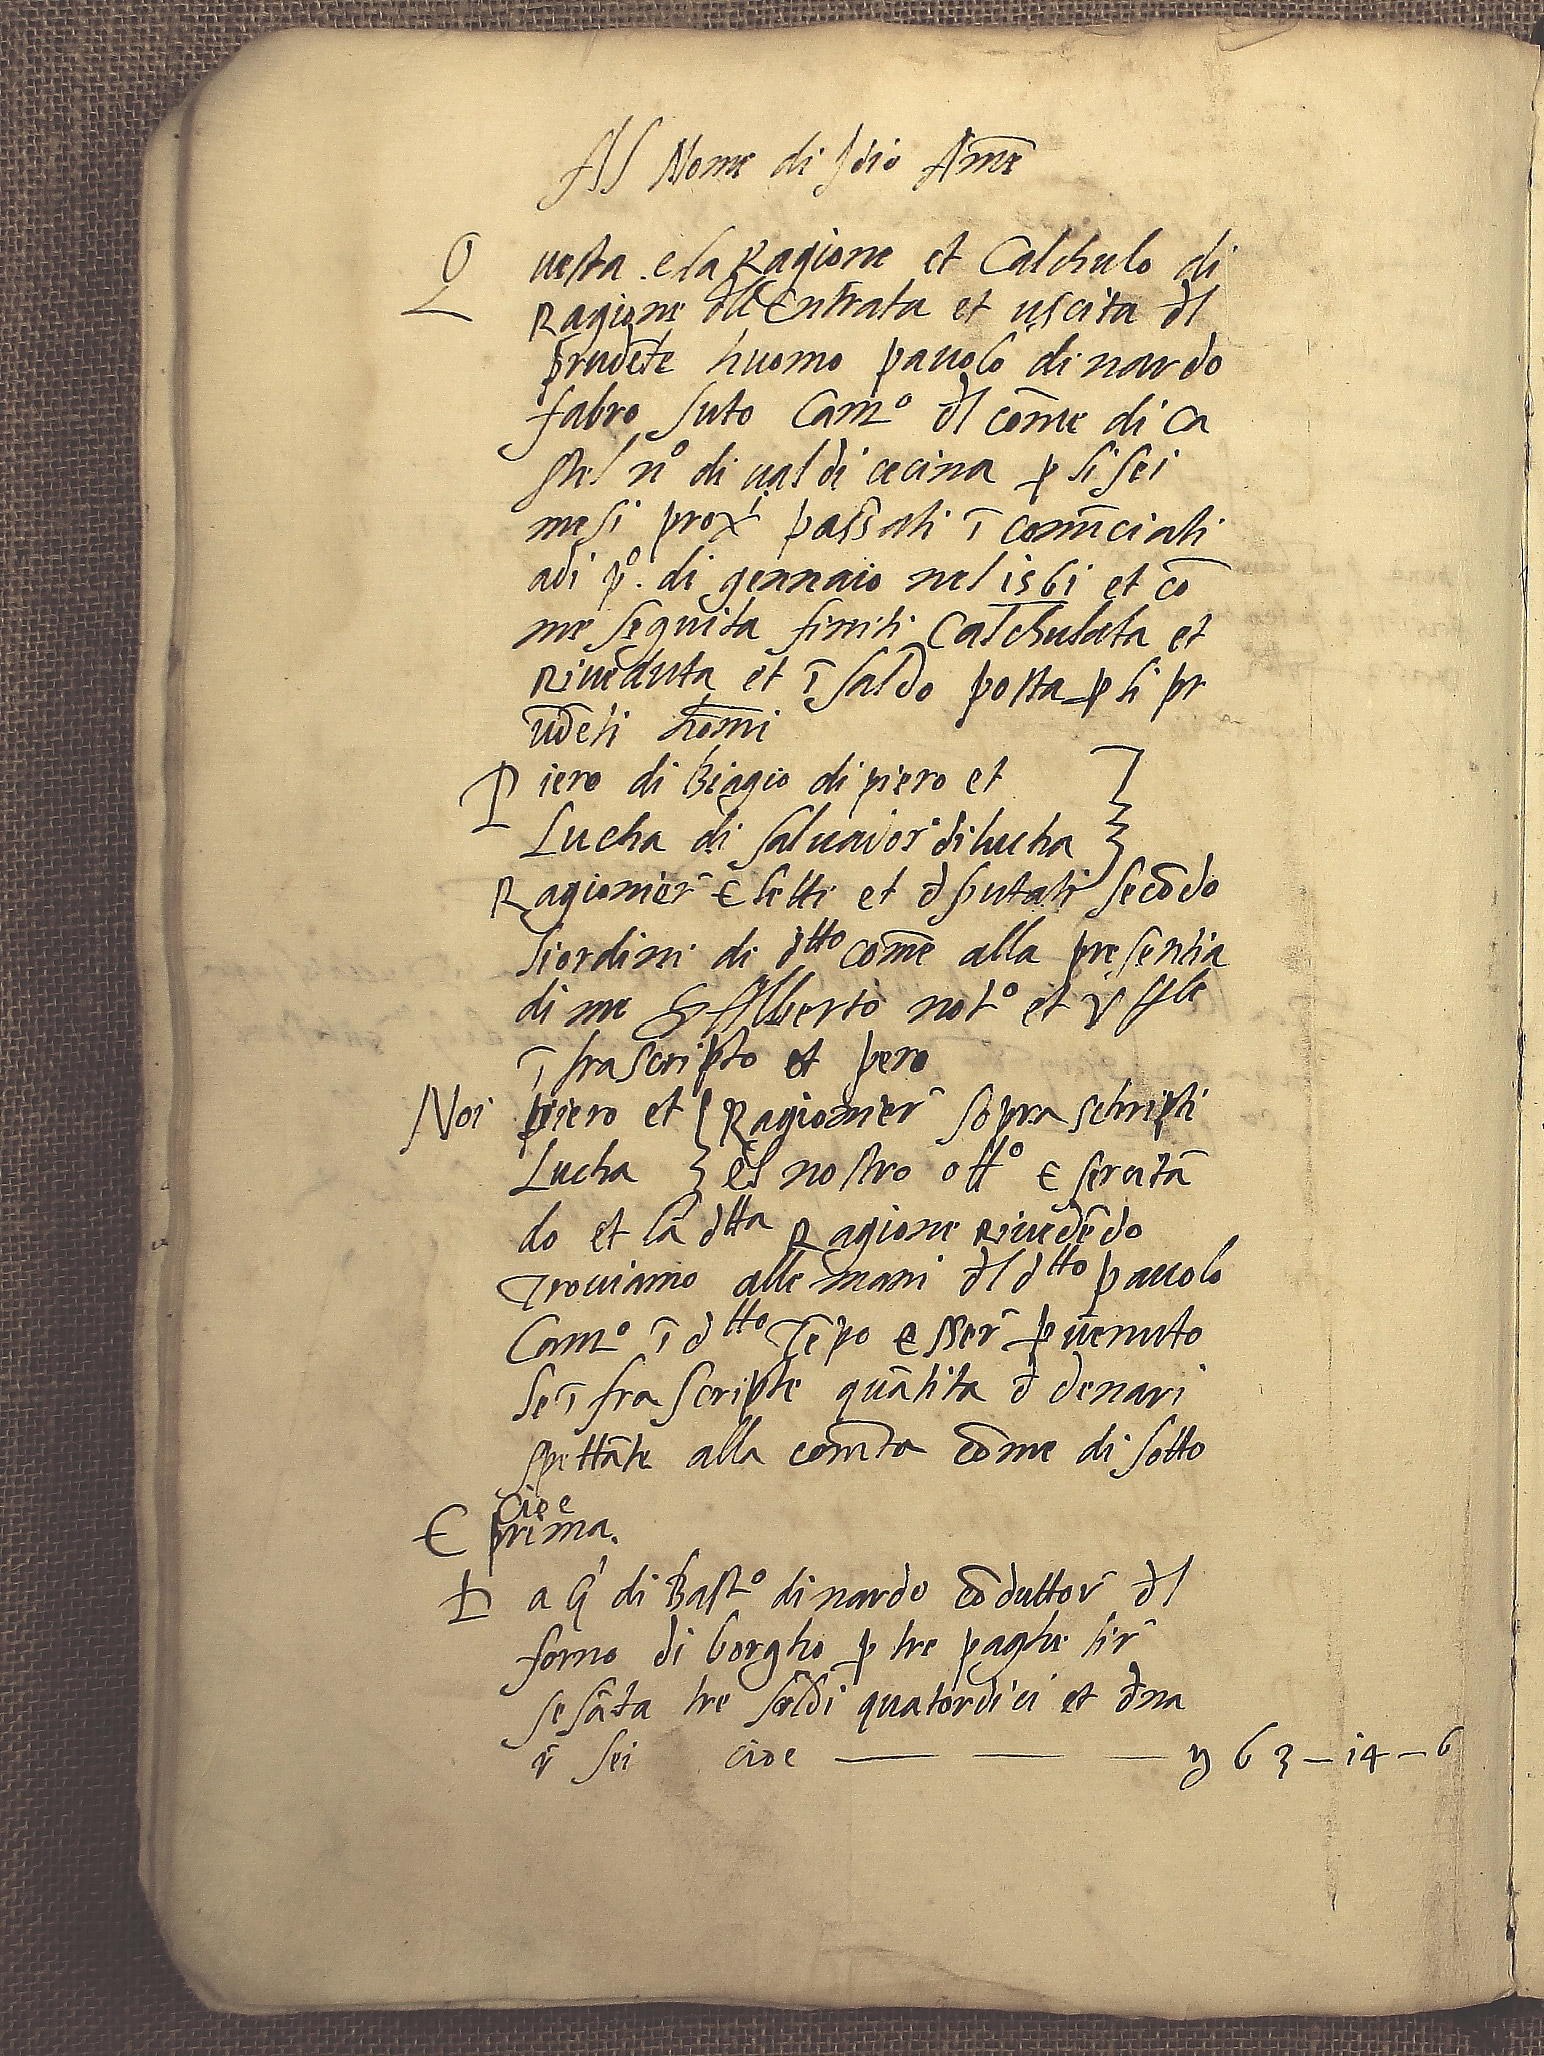 Al Nome di Idio Amē
Questa e la Ragione et Calchulo di
Ragione dll Entrata et uscita dl
prudēte huomo pauolo di nardo
fabro suto Camo dl cōme di Ca
stel no di ual di cecina p li sei
mesi proxi passati īcomīciati
adi po. di gennaio nel 1561 et cō
me seguita finiti Calchulata et
Riueduta et ī saldo posta p li pr
udēti homī
Piero di Biagio di piero et
Lucha di saluador di lucha
Ragionier Eletti et dputati secōdo
li ordini di dtto cōme alla presentia
di me Alberto noto et
īfrascripto et pero
Noi piero et Ragionier sopra schripti
Lucha el nostro offo Esercitā
do et la dtta Ragione Riuedēdo
Trouiamo alle mani dl dtto pauolo
Camo ī dtto Tēpo esser puenuto
le īfrascripte quātita d denari
spettāte alla comta cōme di sotto
cioe
E prima.
Da di Basto di nardo cōduttor dl
forno di borgho p tre paghe lir
sesāta tre soldi quatordici et dna
r sei cioe — — — 63 – 14 – 6